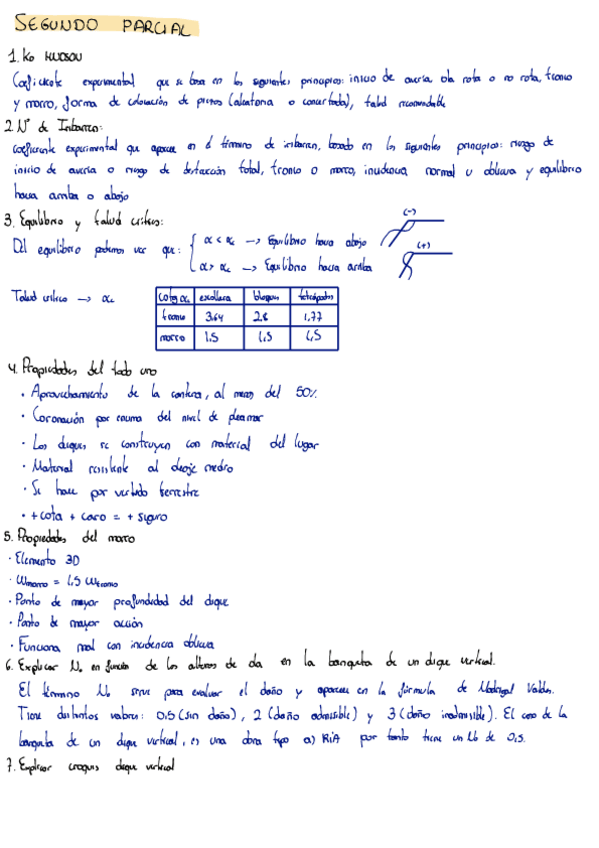 SEGUNDO PARCIAL
1. Ko HUDSON
Coeficiente experimental que se basa en los siguientes principios: inicio de avería, ola rota o no rota, tronco
y morro, forma de colocación de piezas (aleatoria o concertada), talud recomendable
2. Nº de Iribarren:
coeficiente experimental que aparece en el término de iribarren, basado en los siguientes principios: riesgo de
inicio de avería o riesgo de destrucción total, tronco o morro, incidencia normal u oblicua y equilibrio
hacia arriba o abajo
3. Equilibrio y talud crítico:
(-)
Del equilibrio podemos ver que: { α < αc → Equilibrio hacia abajo
α > αc → Equilibrio hacia arriba
(+)
Talud crítico → αc
cotg αc escollera bloques tetrápodos
tronco 3.64 2.8 1,77
morro 1.5 1,5 1,5
4. Propiedades del todo uno
· Aprovechamiento de la cantera, al menos del 50%
· Coronación por encima del nivel de pleamar
· Los diques se construyen con material del lugar
· Material resistente al oleaje medio
· Se hace por vertido terrestre
· + cota + caro = + seguro
5. Propiedades del morro
· Elemento 3D
· Wmorro = 1,5 Wtronco
· Punto de mayor profundidad del dique
· Punto de mayor acción
· Funciona mal con incidencia oblicua
6. Explicar No en función de las alturas de ola en la banqueta de un dique vertical.
El término No sirve para evaluar el daño y aparece en la fórmula de Madrigal Valdés.
Tiene distintos valores: 0,5 (sin daño), 2 (daño admisible) y 3 (daño inadmisible). El caso de la
banqueta de un dique vertical, es una obra tipo a) RIA por tanto tiene un No de 0,5.
7. Explicar croquis dique vertical